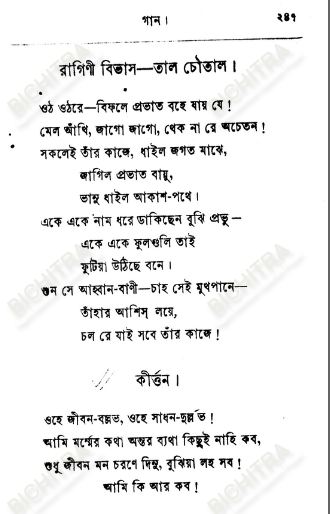 গান।
২৪৭
রাগিণী বিভাস—তাল চৌতাল।
ওঠ ওঠরে—বিফলে প্রভাত বহে যায় যে!
মেল আঁখি, জাগো জাগো, থেক না রে অচেতন!
সকলেই তাঁর কাজে, ধাইল জগত মাঝে,
জাগিল প্রভাত বায়ু,
ভানু ধাইল আকাশ-পথে।
একে একে নাম ধরে ডাকিছেন বুঝি প্রভু—
একে একে ফুলগুলি তাই
ফুটিয়া উঠিছে বনে।
শুন সে আহ্বান-বাণী—চাহ সেই মুখপানে—
তাঁহার আশিস্ লয়ে,
চল রে যাই সবে তাঁর কাজে!
কীর্ত্তন।
ওহে জীবন-বল্লভ, ওহে সাধন-দুর্ল্লভ!
আমি মর্ম্মের কথা অন্তর ব্যথা কিছুই নাহি কব,
শুধু জীবন মন চরণে দিনু, বুঝিয়া লহ সব!
আমি কি আর কব!
BICHITRA